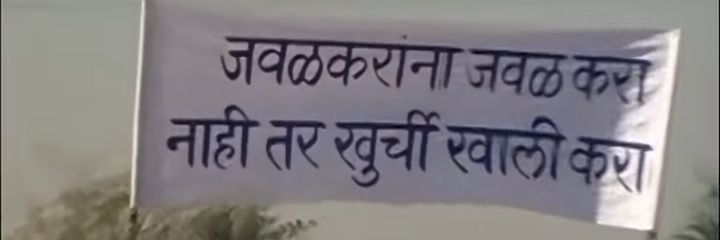 जवळकरांना जवळ करा
नाही तर खुर्ची खाली करा